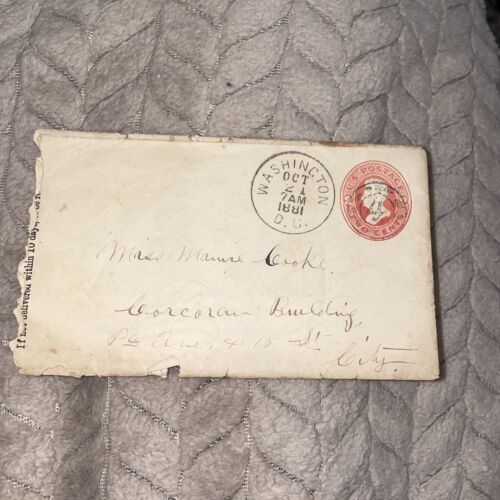 If not delivered within 10 days,
WASHINGTON
OCT
21
7AM
1881
D.C.
U.S. POSTAGE
Miss Mamie Cooke
Corcoran Building
Pa Ave, & 15 St
City.